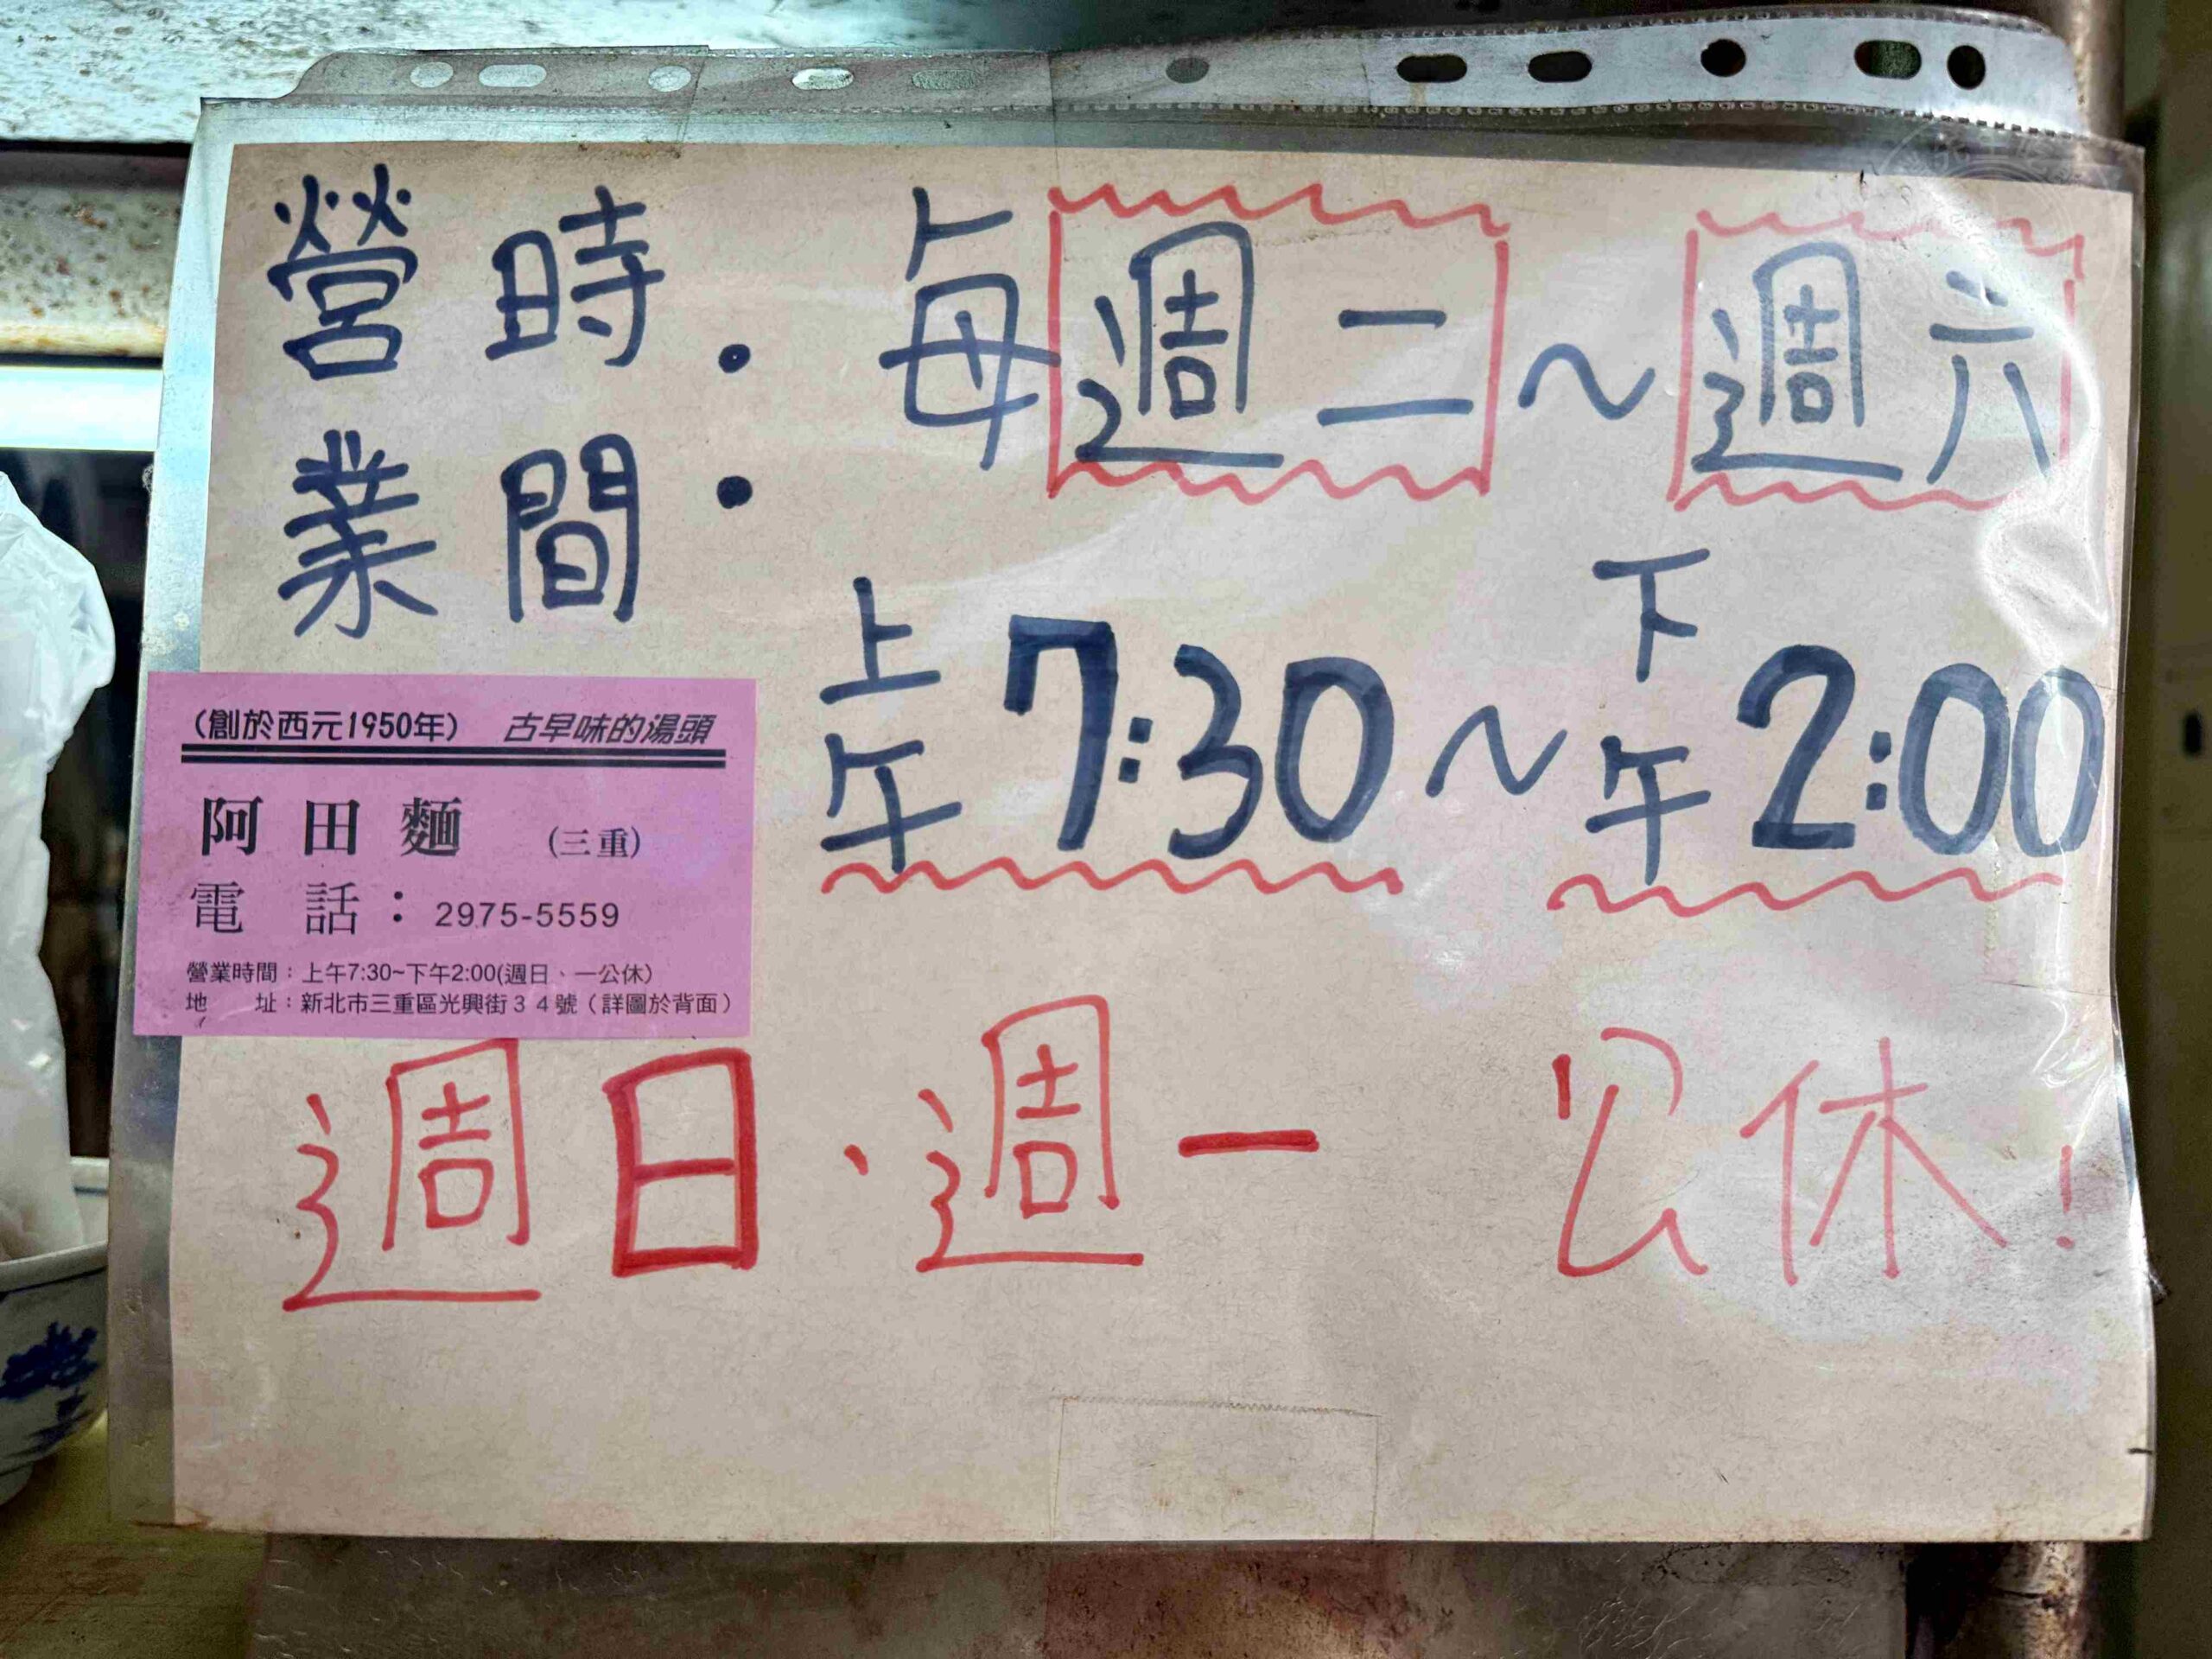 營業時間：每週二～週六
上午7:30～下午2:00
(創於西元1950年) 古早味的湯頭
阿田麵 (三重)
電話：2975-5559
營業時間：上午7:30~下午2:00(週日、一公休)
地址：新北市三重區光興街３４號（詳圖於背面）
週日、週一 公休!